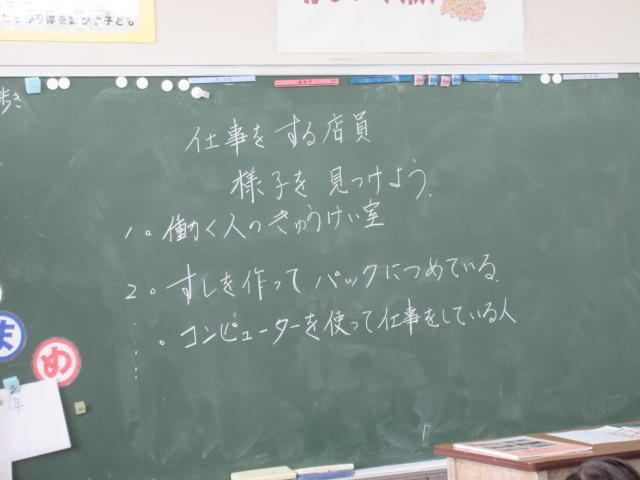 歩き
仕事をする店員
様子を見つけよう。
1。働く人のきゅうけい室
2。すしを作ってパックにつめている。
。コンピューターを使って仕事をしている人
ま
め
年